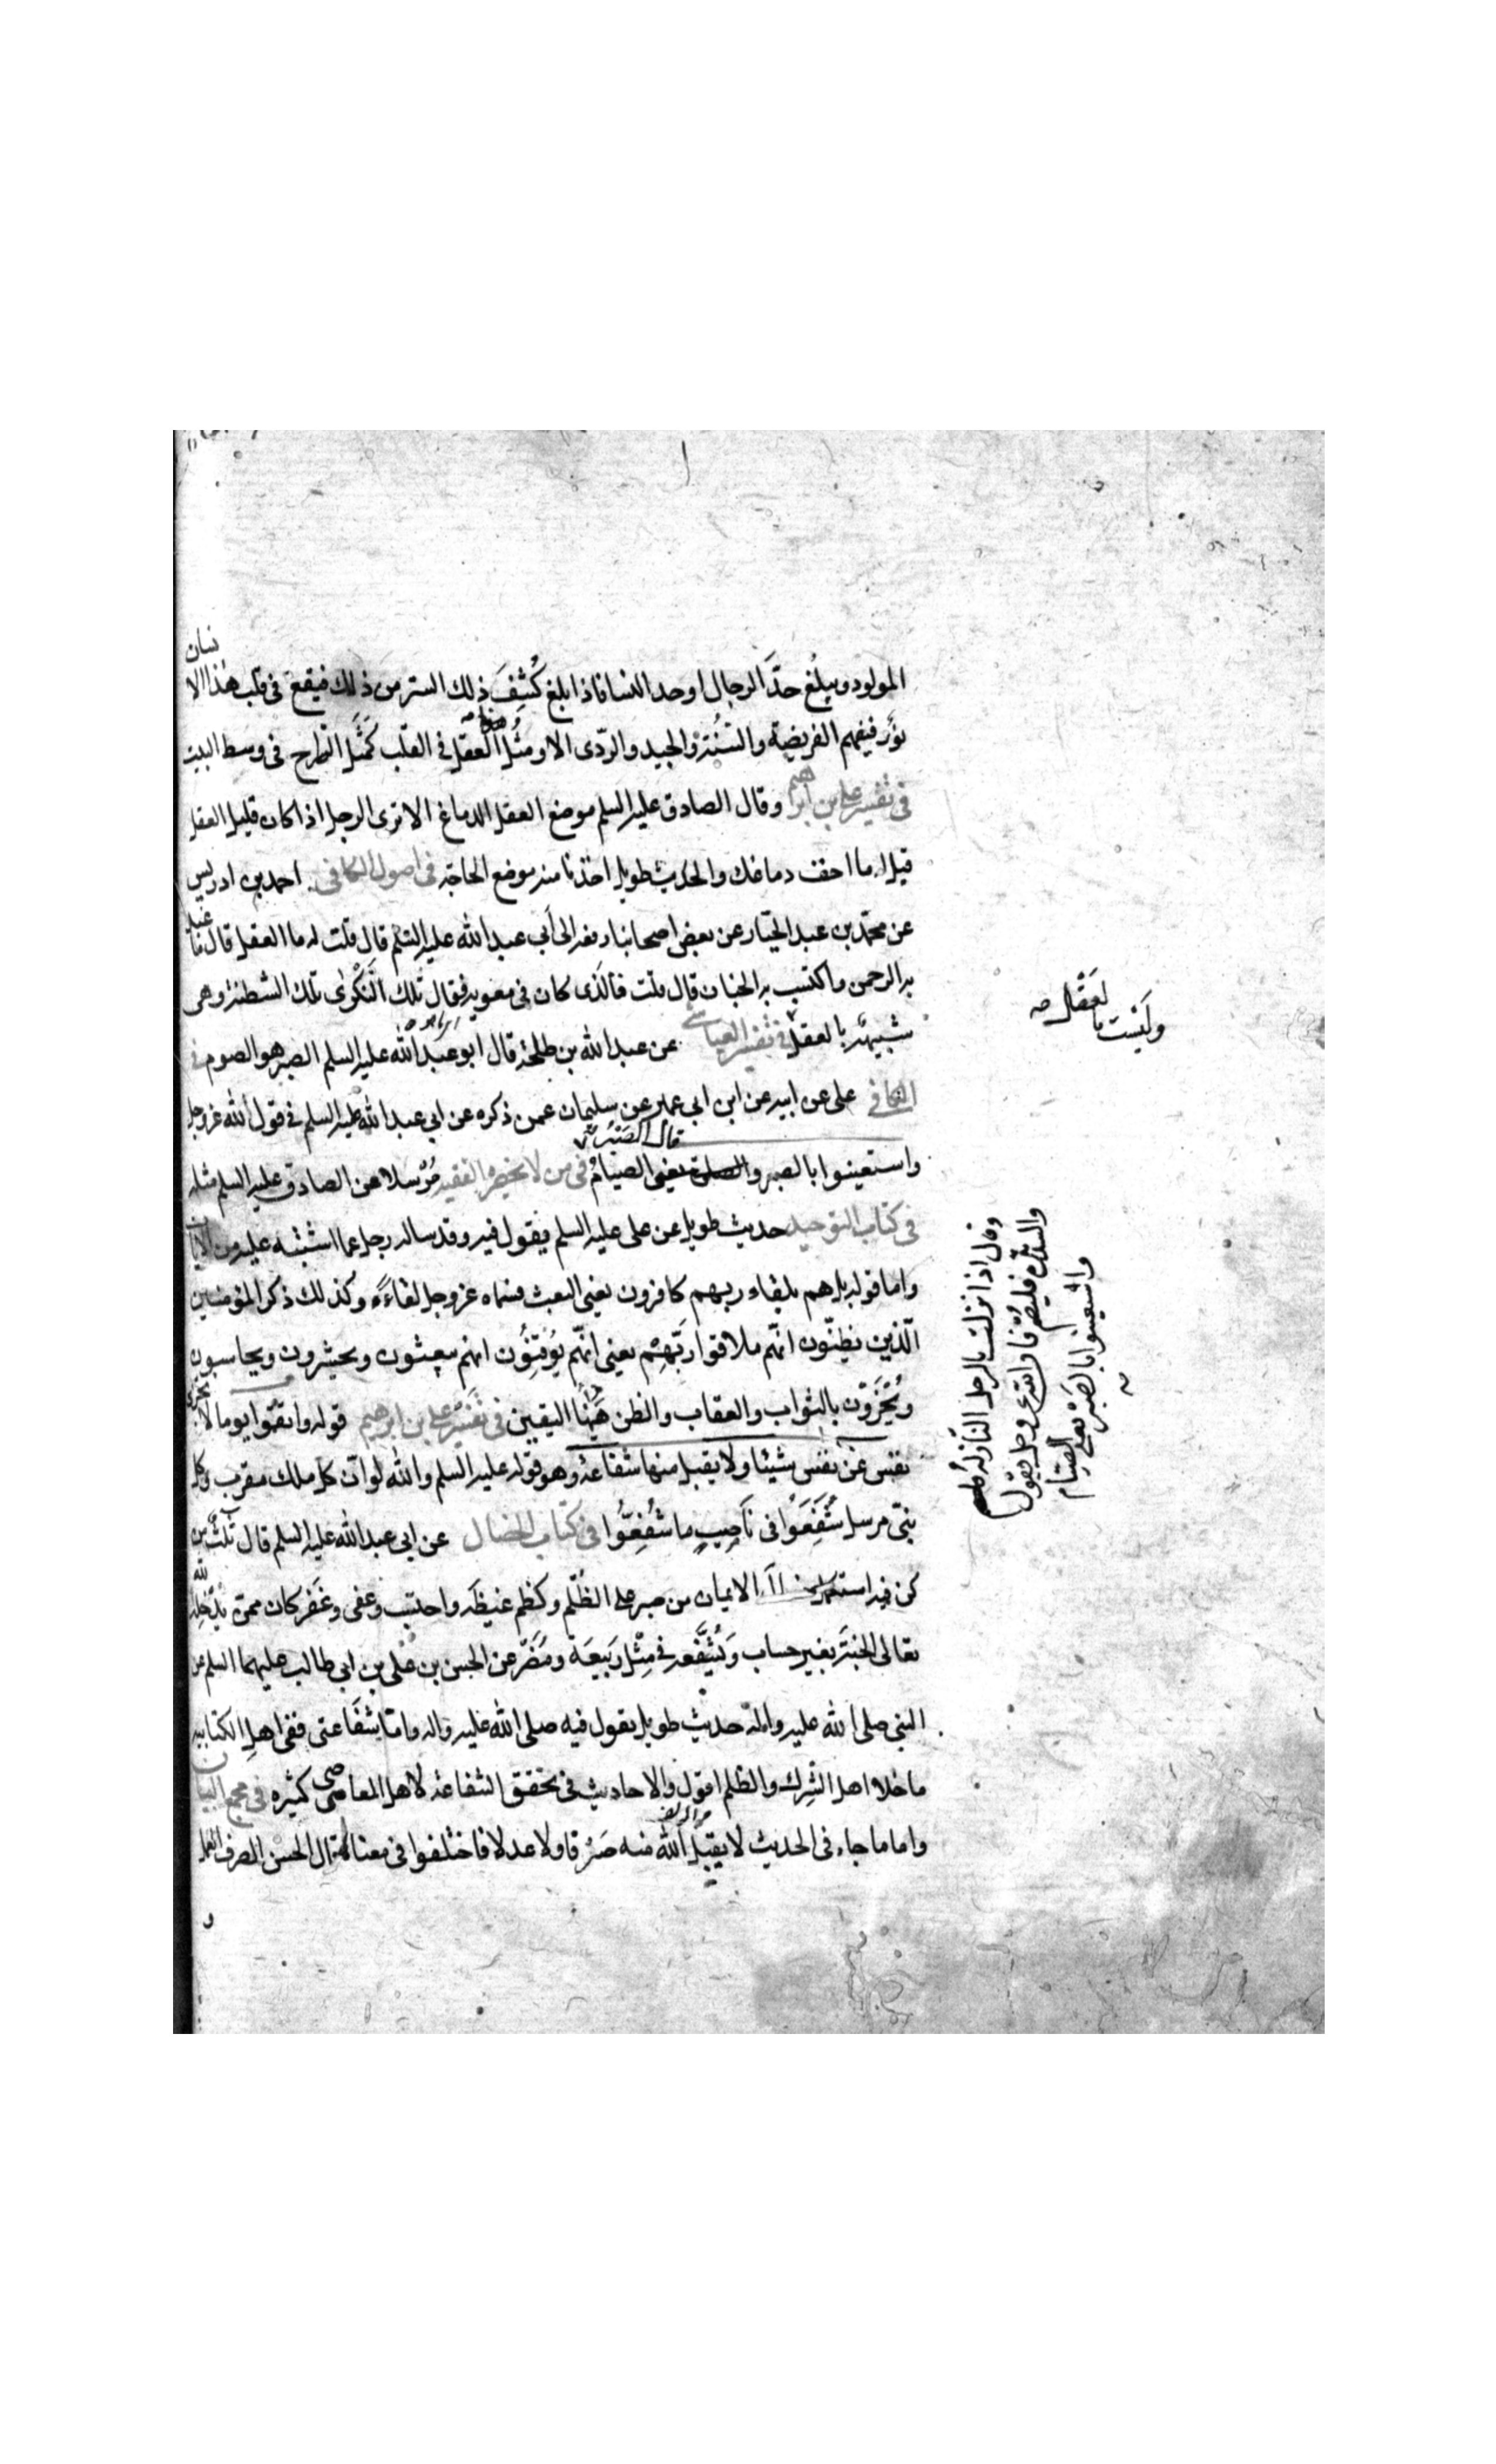 المولود ويبلغ حدّ الرجال او حد النسا فاذا بلغ كُشِفَ ذلك الستر من ذلك فيقع فى قلب هذا الانسان
نور فيفهم الفريضة والسُّنّة والجيد والردّى الا ومثل العقل فى القلب كمَثَل السّراج فى وسط البيت
فى تفسير على بن ابراهيم وقال الصادق عليه السلم موضع العقل الدماغ الا ترى الرجل اذا كان قليل العقل
قيل له ما اخف دماغك والحديث طويل اخذنا منه موضع الحاجة فى اصول الكافى احمد بن ادريس
عن محمّد بن عبد الجبّار عن بعض اصحابنا رفعه الى أبى عبد الله عليه السّلم قال قلت له ما العقل قال ما عُبد
به الرحمن واكتسب به الجنان قال قلت فالّذى كان فى معويه فقال تلك النَّكْرٰى تلك الشطنة وهى
شبيهة بالعقل فى تفسير العياشى عن عبد الله بن طلحة قال ابو عبد الله عليه السلم الصبر هو الصوم فى
الكافى على عن ابيه عن ابن ابى عمير عن سليمان عمن ذكره عن ابى عبد الله عليه السلم فى قول الله عزوجل
قال الصَبْرُ
واستعينوا بالصبر والصلوة يعنى الصيامُ فى من لا يحضره الفقيه مُرْسلا عن الصادق عليه السلم مثله
فى كتاب التوحيد حديث طويل عن على عليه السلم يقول فيه وقد ساله رجل عما اشتبه عليه من الايات
واما قوله بل هم بلقاء ربهم كافرون يعنى البعث فسماه عزوجل لقاءَهُ وكذلك ذكر المؤمنين
الّذين يظنّون انّهم ملاقوا ربّهم يعنى انّهم يُوقِنُون انهم يبعثون ويحشرون ويحاسبون
ويُجْزَوْن بالثواب والعقاب والظن هٰهُنا اليقين فى تفسير على بن ابراهيم قوله واتقوا يوما لا تجزى
نفس عن نفس شيئا ولا يقبل منها شفاعة وهو قوله عليه السلم والله لو انّ كل ملك مقرب وكل
نبىّ مرسل شَفَعوُا فى ناصِبٍ ما شُفِعّوُا فى كتاب الخصال عن ابى عبد الله عليه السلم قال ثلث من
كن فيه استكمل الايمان من صبر على الظُلم وكظم غيظَه واحتسب وعفى وغَفَر كان ممن يُدْخِلُهُ الله
تعالى الجنّة بغير حساب ويُشَفّعه فى مِثْل رَبيعَة ومُضَر عن الحسن بن على بن ابى طالب عليهما السلم عن
النبى صلى الله عليه واله حديث طويل يقول فيه صلى الله عليه واله وامّا شفَاعتى ففى اهل الكبائر
ما خلا اهل الشِرك والظلم اقول والاحاديث فى تحقق الشفاعة لاهل المعاصى كثيرة فى مجمع البيان
واما ما جاء فى الحديث لا يقبل الله منه صَرْفا ولا عدلا فاختلفوا فى معناه قال الحسن الصرف العمل
و
وليْسَت بالعَقْل صح
وقال اذا نزلت بالرجل النازلة
والشديده فليصُم فان الله عزوجل يقول
واستعينوا بالصَبْر يعنى الصيام